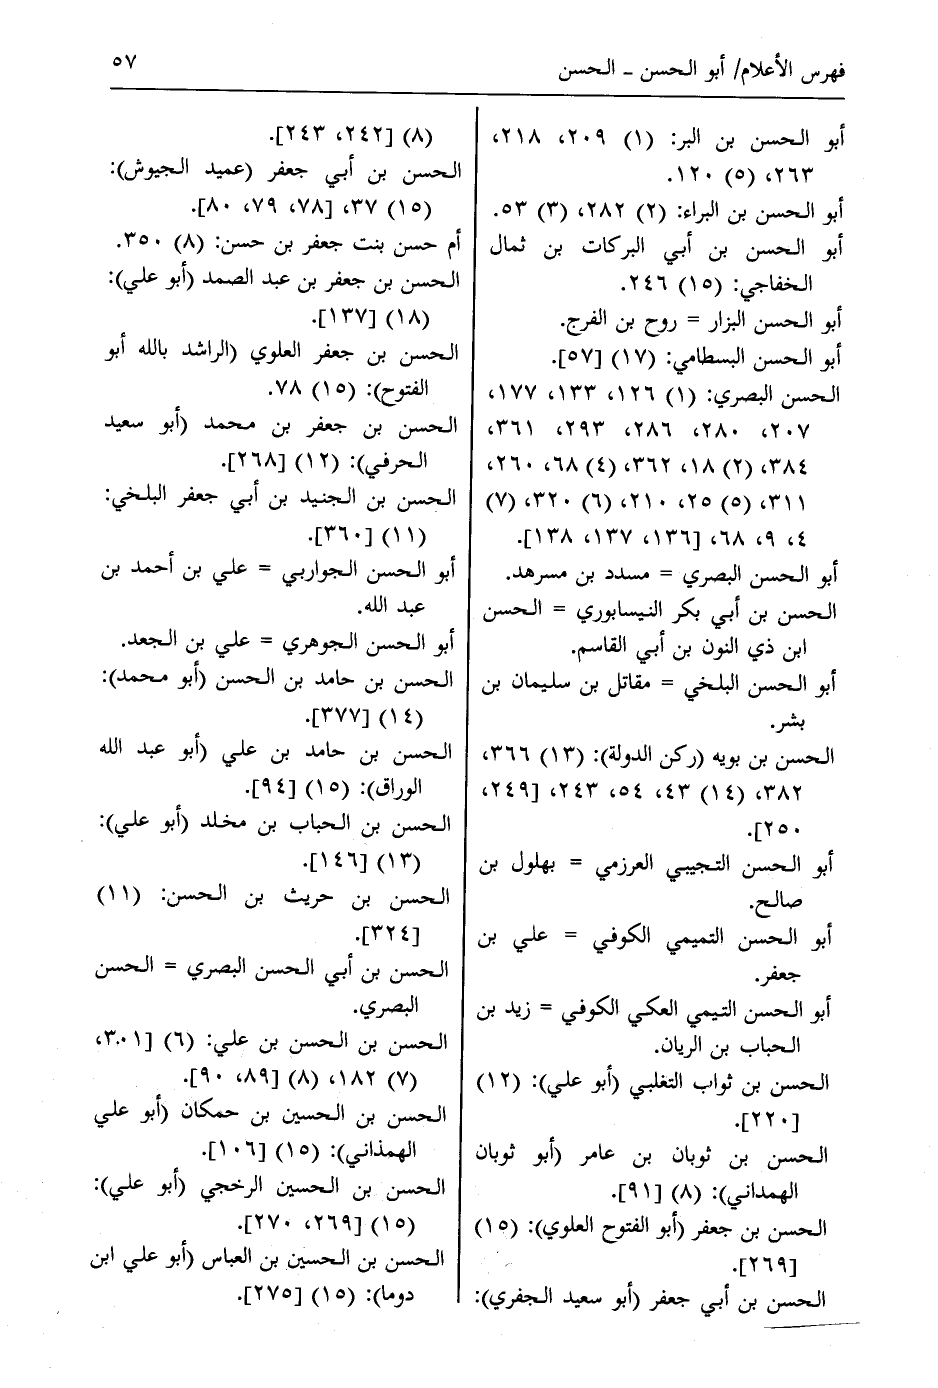 فهرس الأعلام/ أبو الحسن - الحسن
٥٧
أبو الحسن بن البر: (١) ٢٠٩، ٢١٨،
٢٦٣، (٥) ١٢٠.
أبو الحسن بن البراء: (٢) ٢٨٢، (٣) ٥٣.
أبو الحسن بن أبي البركات بن ثمال
الخفاجي: (١٥) ٢٤٦.
أبو الحسن البزار = روح بن الفرج.
أبو الحسن البسطامي: (١٧) [٥٧].
الحسن البصري: (١) ١٢٦، ١٣٣، ١٧٧،
٢٠٧، ٢٨٠، ٢٨٦، ٢٩٣، ٣٦١،
٣٨٤، (٢) ١٨، ٣٦٢، (٤) ٦٨، ٢٦٠،
٣١١، (٥) ٢٥، ٢١٠، (٦) ٣٢٠، (٧)
٤، ٩، ٦٨، [١٣٦، ١٣٧، ١٣٨].
أبو الحسن البصري = مسدد بن مسرهد.
الحسن بن أبي بكر النيسابوري = الحسن
ابن ذي النون بن أبي القاسم.
أبو الحسن البلخي = مقاتل بن سليمان بن
بشر.
الحسن بن بويه (ركن الدولة): (١٣) ٣٦٦،
٣٨٢، (١٤) ٤٣، ٥٤، ٢٤٣، [٢٤٩،
٢٥٠].
أبو الحسن التجيبي العرزمي = بهلول بن
صالح.
أبو الحسن التميمي الكوفي = علي بن
جعفر.
أبو الحسن التيمي العكي الكوفي = زيد بن
الحباب بن الريان.
الحسن بن ثواب التغلبي (أبو علي): (١٢)
[٢٢٠].
الحسن بن ثوبان بن عامر (أبو ثوبان
الهمداني): (٨) [٩١].
الحسن بن جعفر (أبو الفتوح العلوي): (١٥)
[٢٦٩].
الحسن بن أبي جعفر (أبو سعيد الجفري):
(٨) [٢٤٢، ٢٤٣].
الحسن بن أبي جعفر (عميد الجيوش):
(١٥) ٣٧، [٧٨، ٧٩، ٨٠].
أم حسن بنت جعفر بن حسن: (٨) ٣٥٠.
الحسن بن جعفر بن عبد الصمد (أبو علي):
(١٨) [١٣٧].
الحسن بن جعفر العلوي (الراشد بالله أبو
الفتوح): (١٥) ٧٨.
الحسن بن جعفر بن محمد (أبو سعيد
الحرفي): (١٢) [٢٦٨].
الحسن بن الجنيد بن أبي جعفر البلخي:
(١١) [٣٦٠].
أبو الحسن الجواربي = علي بن أحمد بن
عبد الله.
أبو الحسن الجوهري = علي بن الجعد.
الحسن بن حامد بن الحسن (أبو محمد):
(١٤) [٣٧٧].
الحسن بن حامد بن علي (أبو عبد الله
الوراق): (١٥) [٩٤].
الحسن بن الحباب بن مخلد (أبو علي):
(١٣) [١٤٦].
الحسن بن حريث بن الحسن: (١١)
[٣٢٤].
الحسن بن أبي الحسن البصري = الحسن
البصري.
الحسن بن الحسن بن علي: (٦) [٣٠١،
(٧) ١٨٢، (٨) [٨٩، ٩٠].
الحسن بن الحسين بن حمكان (أبو علي
الهمذاني): (١٥) [١٠٦].
الحسن بن الحسين الرخجي (أبو علي):
(١٥) [٢٦٩، ٢٧٠].
الحسن بن الحسين بن العباس (أبو علي ابن
دوما): (١٥) [٢٧٥].